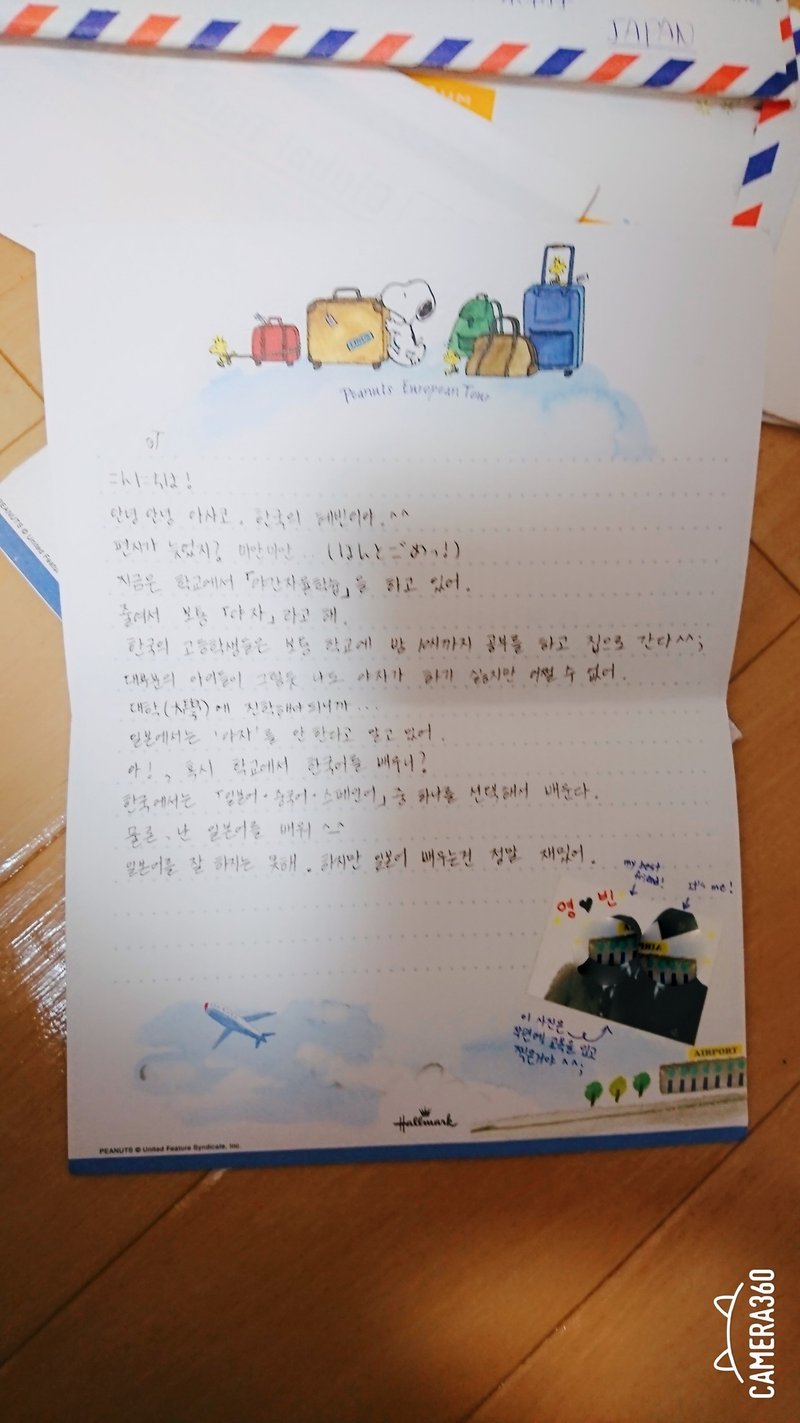 JAPAN
Peanuts European Tour
こんにちは!
안녕안녕 아사코. 한국의 혜빈이야.^^
편지가 늦었지? 미안미안... (ほんとごめっ!)
지금은 학교에서 「야간자율학습」을 하고 있어.
줄여서 보통 「야자」라고 해.
한국의 고등학생들은 보통 학교에 밤 10시까지 공부를 하고 집으로 간다^^;
대부분의 아이들이 그렇듯 나도 야자가 하기 싫지만 어쩔 수 없어.
대학(大學)에 진학해야되니까...
일본에서는 '야자'를 안 한다고 알고 있어.
아!, 혹시 학교에서 한국어를 배우니?
한국에서는 「일본어·중국어·스페인어」중 하나를 선택해서 배운다.
물론, 난 일본어를 배워 ^-^
일본어를 잘 하지는 못해. 하지만 일본어 배우는건 정말 재밌어.
my best
friend!
It's me!
영♥빈
이 사진은
작년에 교복을 입고
찍은거야^^;
AIRPORT
Hallmark
PEANUTS © United Feature Syndicate, Inc.
PEANUTS © United Feat
CAMERA360